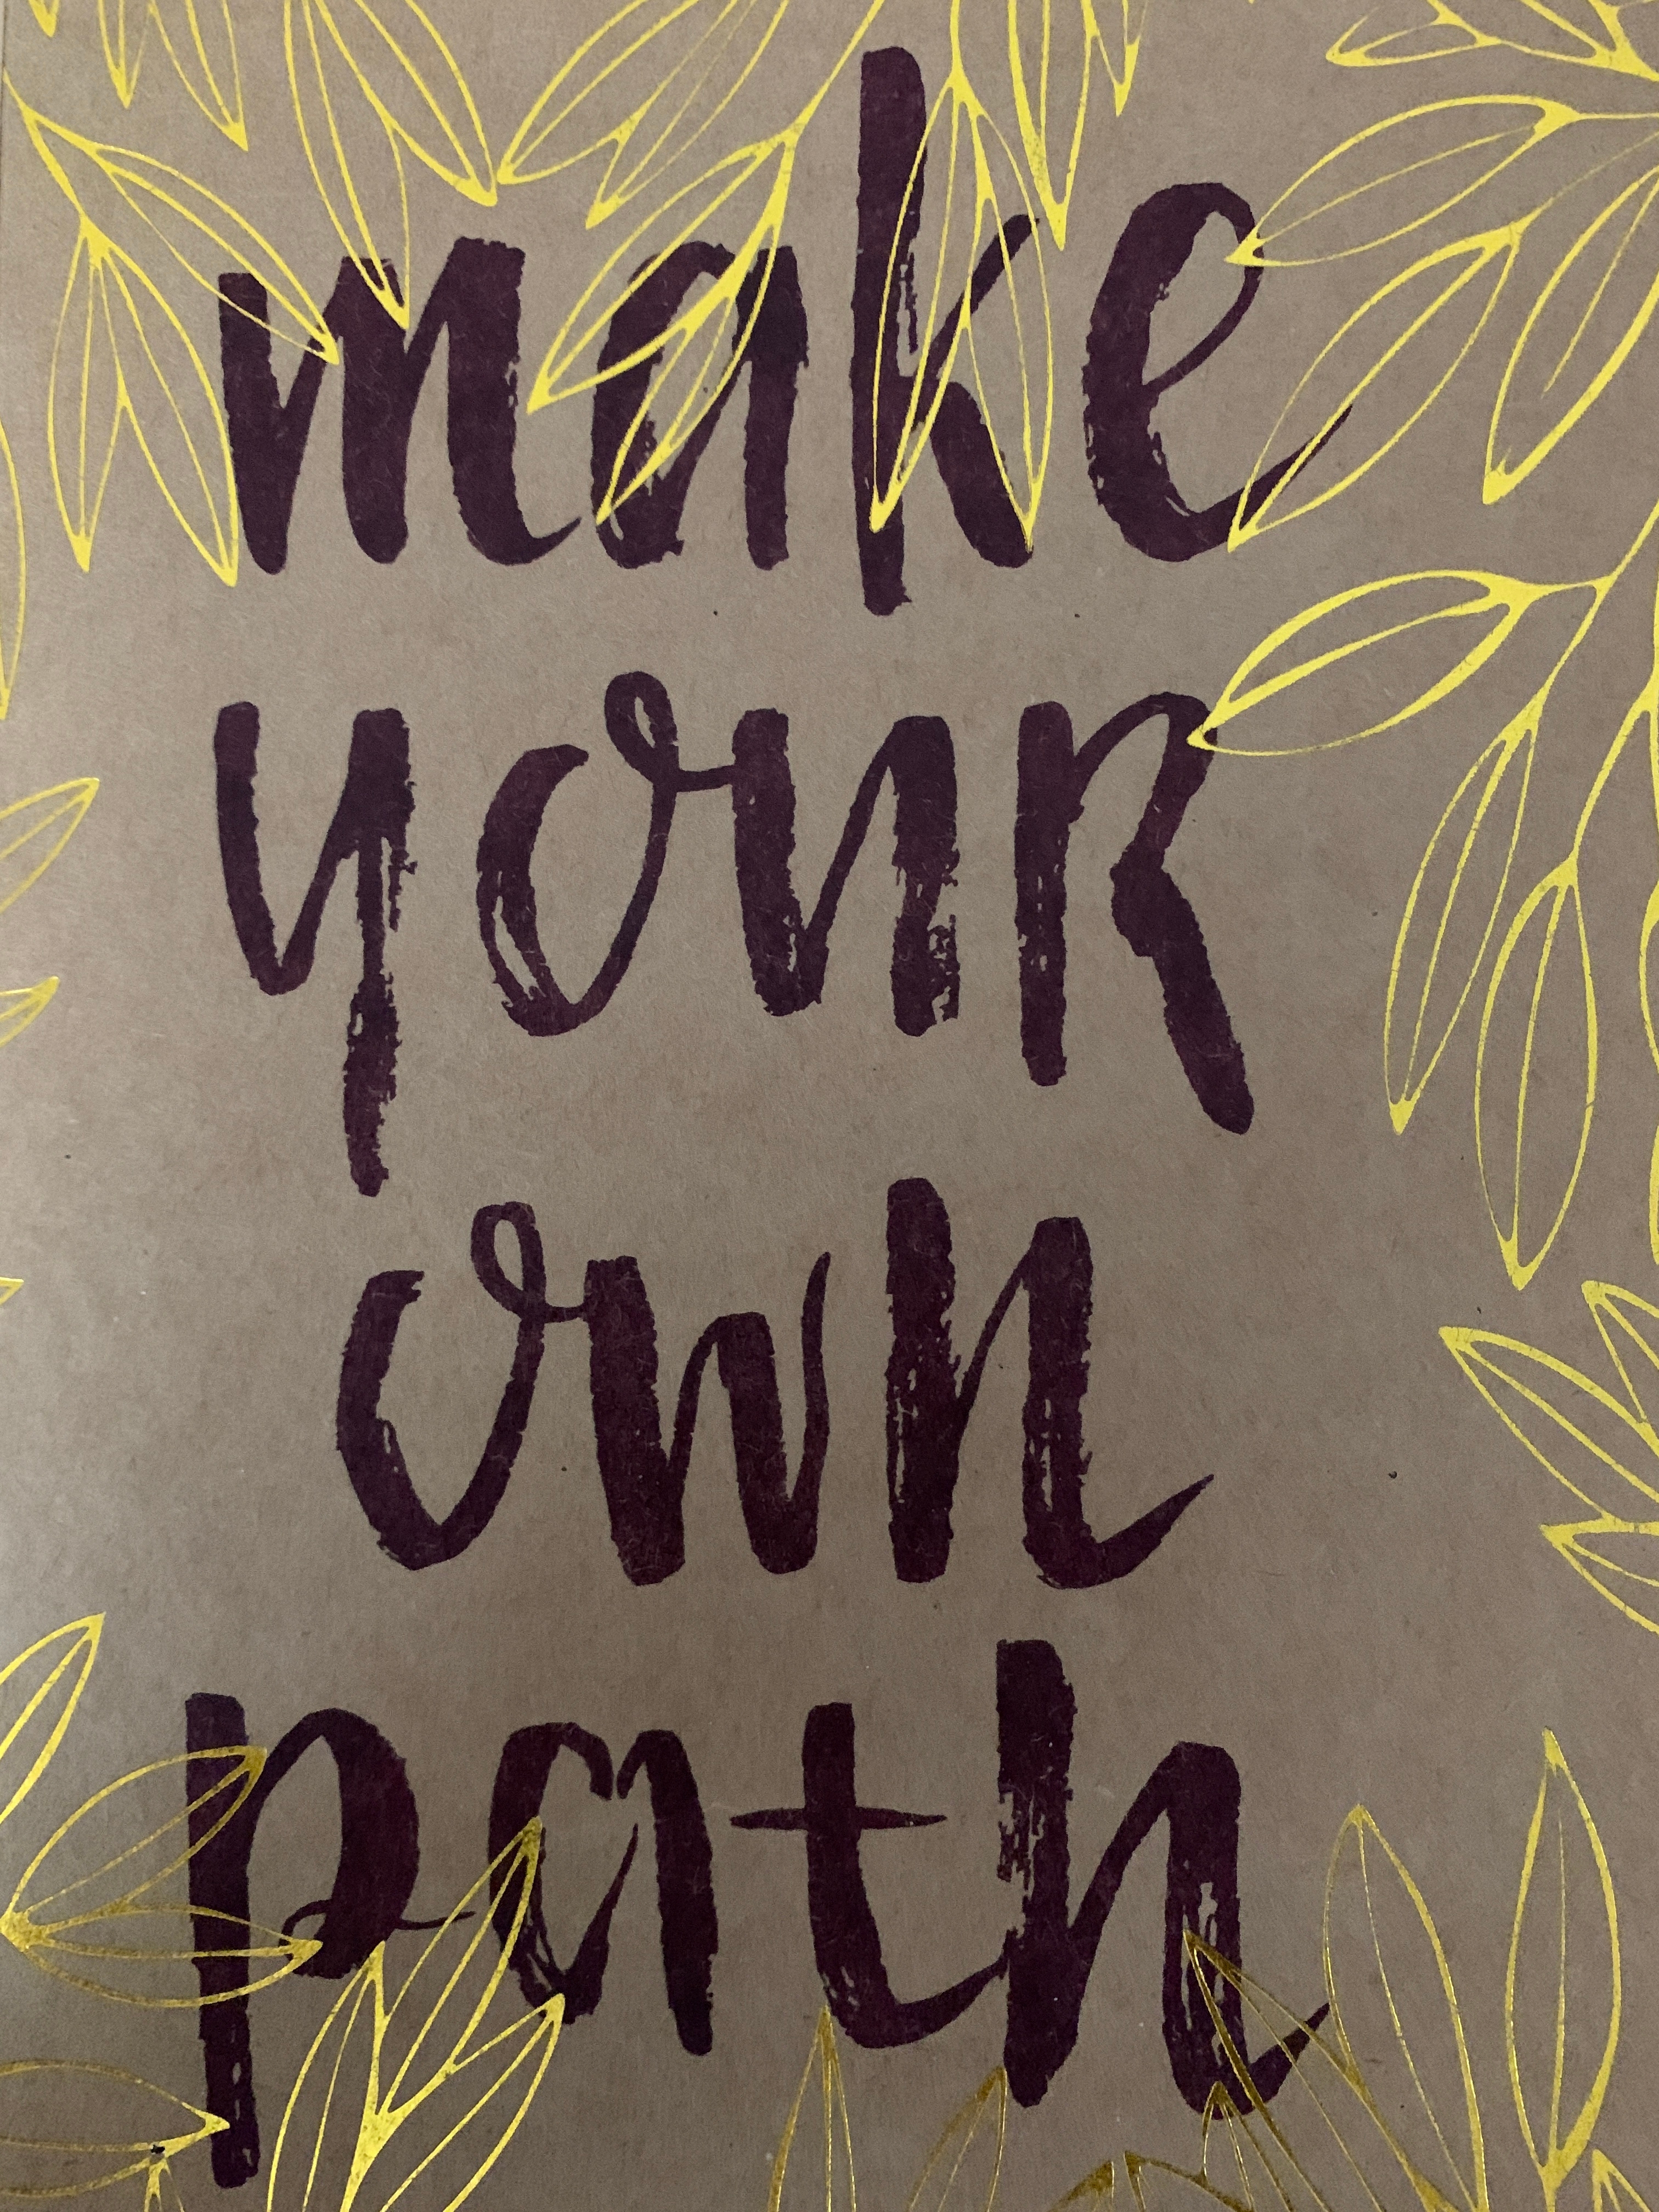 make
youR
own
path